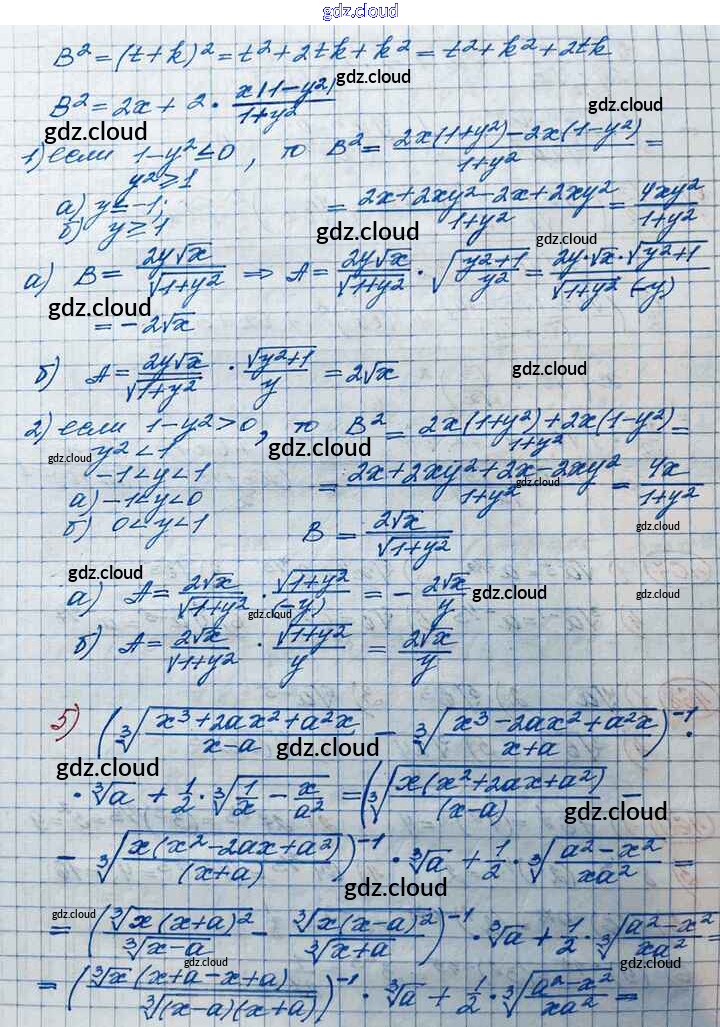 gdz.cloud
B² = (t+k)² = t² + 2tk + k² = t² + k² + 2tk
gdz.cloud
B² = 2x + 2 · x(1-y²)/(1+y²)
gdz.cloud
1) если 1-y² ≤ 0, то B² = (2x(1+y²) - 2x(1-y²))/(1+y²) =
gdz.cloud
y² ≥ 1
а) y ≤ -1; = (2x+2xy²-2x+2xy²)/(1+y²) = 4xy²/(1+y²)
б) y ≥ 1
gdz.cloud gdz.cloud
а) B = 2y√x/√(1+y²) ⇒ A = 2y√x/√(1+y²) · √((y²+1)/y²) = 2y·√x·√(y²+1)/(√(1+y²)(-y))
gdz.cloud gdz.cloud
= -2√x
б) A = 2y√x/√(1+y²) · √(y²+1)/y = 2√x
gdz.cloud
2) если 1-y² > 0, то B² = (2x(1+y²)+2x(1-y²))/(1+y²) =
gdz.cloud gdz.cloud
y² < 1
-1 < y < 1 = (2x+2xy²+2x-2xy²)/(1+y²) = 4x/(1+y²)
gdz.cloud
а) -1 < y < 0
б) 0 < y < 1 B = 2√x/√(1+y²)
gdz.cloud
а) A = 2√x/√(1+y²) · √(1+y²)/(-y) = - 2√x/y
gdz.cloud gdz.cloud gdz.cloud
б) A = 2√x/√(1+y²) · √(1+y²)/y = 2√x/y
5) (∛((x³+2ax²+a²x)/(x-a)) - ∛((x³-2ax²+a²x)/(x+a)))⁻¹ ·
gdz.cloud
gdz.cloud
· ∛a + 1/2 · ∛(1/x - x/a²) = (∛(x(x²+2ax+a²)/(x-a)) -
gdz.cloud
- ∛(x(x²-2ax+a²)/(x+a)))⁻¹ · ∛a + 1/2 · ∛((a²-x²)/(xa²)) =
gdz.cloud
gdz.cloud
= (∛(x(x+a)²)/∛(x-a) - ∛(x(x-a)²)/∛(x+a))⁻¹ · ∛a + 1/2 · ∛((a²-x²)/(xa²)) =
gdz.cloud gdz.cloud
= (∛x(x+a-x+a)/∛((x-a)(x+a)))⁻¹ · ∛a + 1/2 · ∛((a²-x²)/(xa²)) =